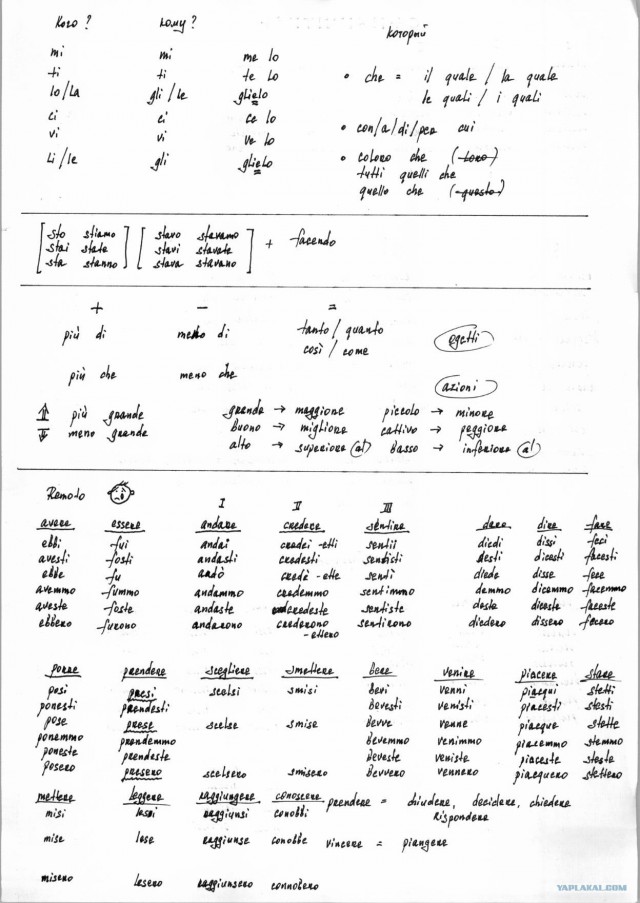 Кого ? кому ? который
mi mi me lo
ti ti te lo • che = il quale / la quale
lo/la gli / le glielo le quali / i quali
ci ci ce lo
vi vi ve lo • con/a/di/per cui
li/le gli glielo • coloro che (loro)
tutti quelli che
quello che (questo)
sto stiamo stavo stavamo
stai state stavi stavate + facendo
sta stanno stava stavano
+ - =
più di meno di tanto / quanto ogetti
così / come
più che meno che azioni
⇑ più grande grande → maggiore piccolo → minore
⇓ meno grande buono → migliore cattivo → peggiore
alto → superiore (a) basso → inferiore (a)
Remoto I II III
avere essere andare credere sentire dare dire fare
ebbi fui andai credei -etti sentii diedi dissi feci
avesti fosti andasti credesti sentisti desti dicesti facesti
ebbe fu andò credé -ette sentì diede disse fece
avemmo fummo andammo credemmo sentimmo demmo dicemmo facemmo
aveste foste andaste credeste sentiste deste diceste faceste
ebbero furono andarono crederono sentirono diedero dissero fecero
-ettero
porre prendere scegliere smettere bere venire piacere stare
posi presi scelsi smisi bevi venni piacqui stetti
ponesti prendesti bevesti venisti piacesti stesti
pose prese scelse smise bevve venne piacque stette
ponemmo prendemmo bevemmo venimmo piacemmo stemmo
poneste prendeste beveste veniste piaceste steste
posero presero scelsero smisero bevvero vennero piacquero stettero
mettere leggere raggiungere conoscere prendere = chiudere, decidere, chiedere
misi lessi raggiunsi conobbi rispondere
mise lese raggiunse conobbe vincere = piangere
misero lesero raggiunsero connobero
YAPLAKAL.COM